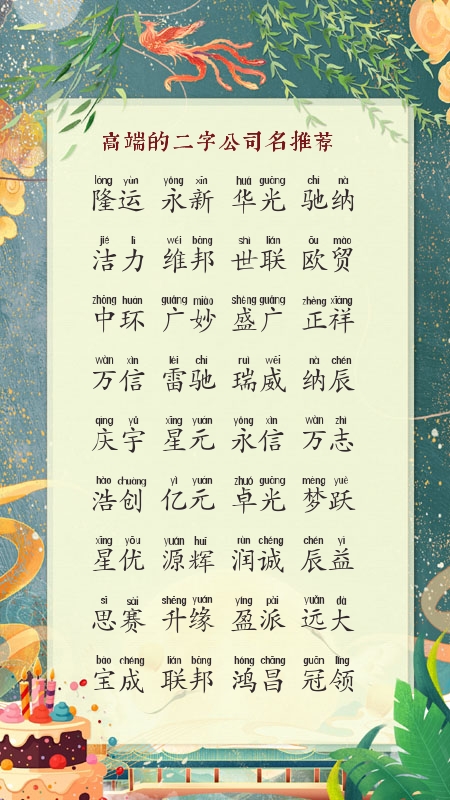 高端的二字公司名推荐
lóng yùn yǒng xīn huá guāng chí nà
隆运 永新 华光 驰纳
jié lì wéi bāng shì lián ōu mào
洁力 维邦 世联 欧贸
zhōng huán guǎng miào shèng guǎng zhèng xiáng
中环 广妙 盛广 正祥
wàn xìn léi chí ruì wēi nà chén
万信 雷驰 瑞威 纳辰
qìng yǔ xīng yuán yǒng xìn wàn zhì
庆宇 星元 永信 万志
hào chuàng yì yuán zhuó guāng mèng yuè
浩创 亿元 卓光 梦跃
xīng yōu yuán huī rùn chéng chén yì
星优 源辉 润诚 辰益
sī sài shēng yuán yíng pài yuǎn dà
思赛 升缘 盈派 远大
bǎo chéng lián bāng hóng chāng guān lǐng
宝成 联邦 鸿昌 冠领